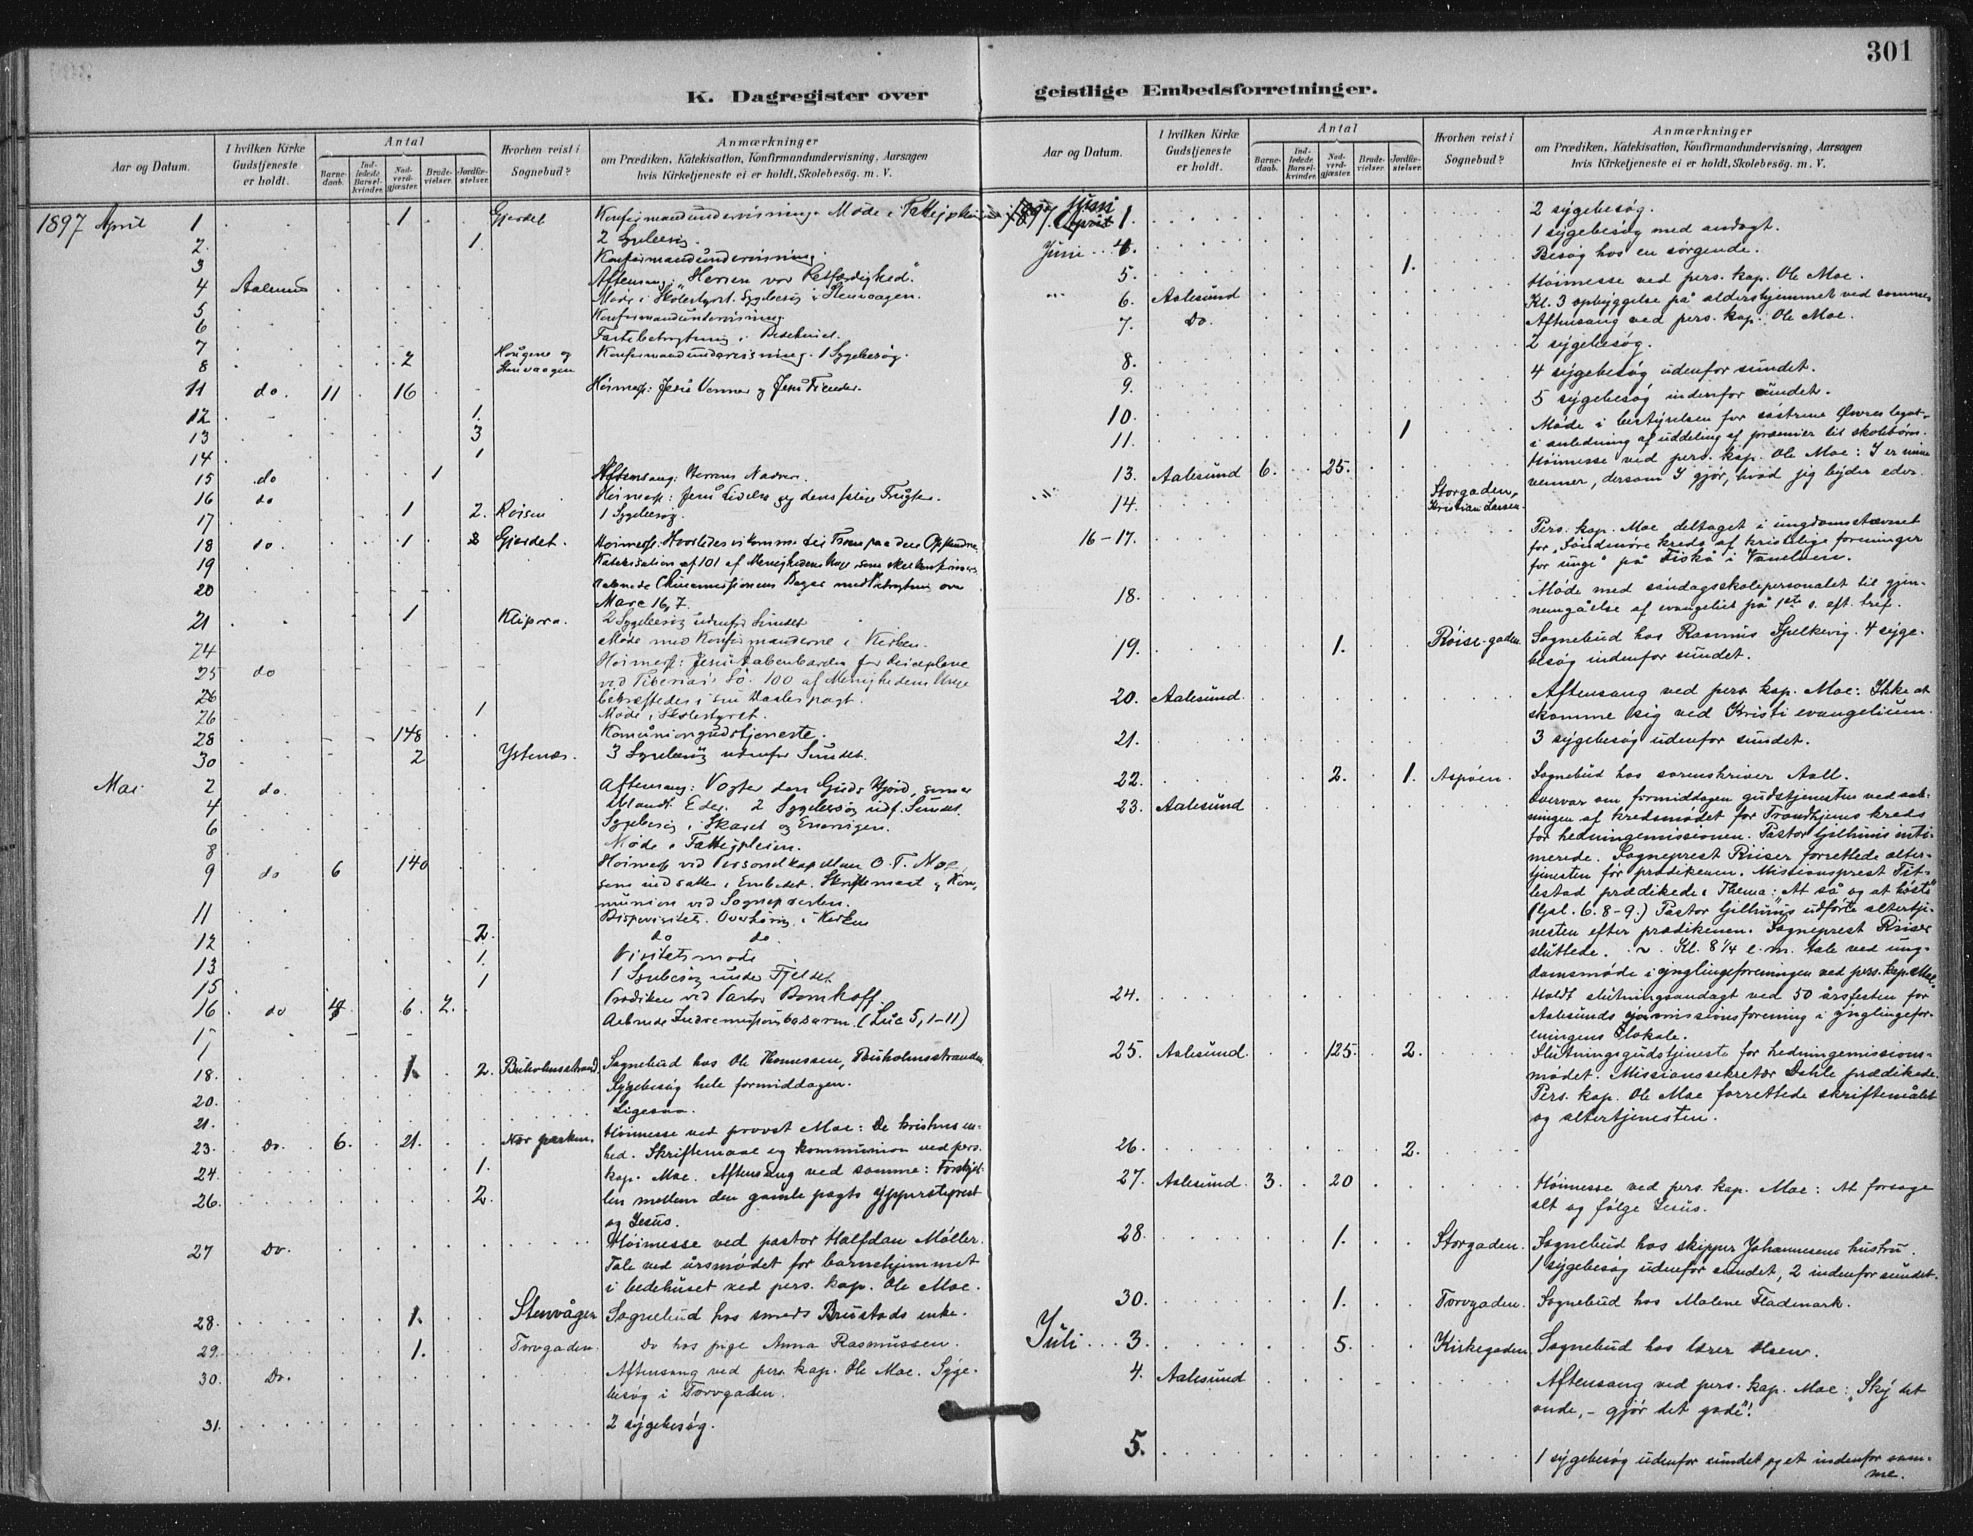 301
K. Dagregister over geistlige Embedsforretninger.
Aar og Datum.
I hvilken Kirke Gudstjeneste er holdt.
Antal
Barnedaab.
Indledede Barselkvinder.
Nadverdgjæster.
Brudevielser.
Jordfæstelser.
Hvorhen reist i Sognebud?
Anmærkninger
om Prædiken, Katekisation, Konfirmandundervisning, Aarsagen
hvis Kirketjeneste ei er holdt, Skolebesøg. m. V.
1897 April 1 1 Gjerdet Konfirmandundervisning. Møde i
2. 1. 2 Sygebesøg.
3 Konfirmandundervisning.
4 Aalesund Aftensang: "Herren vor Retfærdighed."
5 Møde i Skolestyret. Sygebesøg i Stenvaagen.
6 Konfirmandundervisning.
7 Fastebetragtning i Bedehuset.
8 2 Haugene og Stenvaagen Konfirmandundervisning. 1 Sygebesøg.
11 do. 11 16 Høimesse: Jesu Venner og Jesu Fiender.
12 1.
13 3
14 1
15 do 1 Aftensang: Herrens Nadver.
16 do Høimesse: Jesu Lidelse og dens salige Frugter.
17 1 2. Røisen 1 Sygebesøg.
18 do. 1 2 Gjerdet. Høimesse: Hvorledes vi komme til Troen paa den Opstandne
19 Katekisation af 101 af Menighedens Unge
20 Kinamissionens Bazar med Betragtning over
Marc 16, 7.
21 1 Klipra. 2 Sygebesøg udenfor Sundet
24 Møde med Konfirmanderne i Kirken.
25 do Høimesse: Jesu Aabenbarelse for Disciplene
ved Tiberias Sø. 100 af Menighedens Unge
26 bekræftedes i sin Daabspagt.
26 1 Møde i Skolestyret.
28 148 Komuniongudstjeneste.
30 2 Ystenæs. 3 Sygebesøg udenfor Sundet.
Mai 2 do. Aftensang: Vogter den Guds Hjord, som er
4 iblandt Eder. 2 Sygebesøg udf. Sundet.
6 Sygebesøg i Skaret og
8 Møde i Fattigpleien.
9 do 6 140 Høimesse ved Personelkapellan O. T. Moe,
som indsattes i Embedet. Skriftemaal og Kommunion
ved Sognepræsten.
11 Bispevisitats. Overhøring i Kirken
12 2. do do.
13 1. Visitatsmøde
15 1 1 Sygebesøg under Fjeldet
16 do 4 6. 2. Prædiken ved Pastor Bomhoff.
17 Aabnede Indremissionsbasaren. (Luc 5, 1-11)
18. 1. 2. Buholmsstrand. Sognebud hos Ole Hannessen, Buholmsstranden.
20. Sygebesøg hele formiddagen.
21. Ligesaa.
23. Do. 6. 21. Nær parken. Høimesse ved provst Moe: De kristnes enhed.
24. 1. Skriftemaal og kommunion ved pers.
26. 2. kap. Moe. Aftensang ved samme: Forskjellen
mellem den gamle pagts ypperstepræst
og Jesus.
27 Do. Høimesse ved pastor Halfdan Møller.
Tale ved årsmødet for barnehjemmet
i bedehuset ved pers. kap. Ole Moe.
28. 1. Stenvågen Sognebud hos smeds Brustads enke.
29. 1. Torvgaden. Do hos pige Anna Rasmussen.
30. Do. Aftensang ved pers. kap. Ole Moe. Sygebesøg
i Torvgaden.
31. 2 sygebesøg.
Aar og Datum.
I hvilken Kirke Gudstjeneste er holdt.
Antal
Barnedaab.
Indledede Barselkvinder.
Nadverdgjæster.
Brudevielser.
Jordfæstelser.
Hvorhen reist i Sognebud?
Anmærkninger
om Prædiken, Katekisation, Konfirmandundervisning, Aarsagen
hvis Kirketjeneste ei er holdt, Skolebesøg. m. V.
1897. Juni 1. 2 sygebesøg.
1 sygebesøg med andagt.
Juni 4. 1. Besøg hos en sørgende.
5. Høimesse ved pers. kap. Ole Moe.
6. Aalesund Kl. 3 opbyggelse på aldershjemmet ved samme.
7. Do. Aftensang ved pers. kap. Ole Moe.
2 sygebesøg.
8. 4 sygebesøg udenfor sundet.
9. 5 sygebesøg indenfor sundet.
10. Møde i bestyrelsen for søstrene Øvres legat
11. 1 i anledning af uddeling af præmier til skolebørn.
13. Aalesund 6. 25. Høimesse ved pers. kap. Ole Moe: I er mine
venner, dersom I gjør, hvad jeg byder eder.
14. Storgaden, Kristian Larsen.
16-17. Pers. kap. Moe deltaget i ungdomsstævnet
for "Søndmøre kreds af kristelige foreninger
for unge" på Fiskå i Vanelven.
18. Møde med søndagsskolepersonalet til gjennemgåelse
af evangeliet på 1ste s. eft. tref.
19. 1. Røise-gaden. Sognebud hos Rasmus Spelkevig. 4 sygebesøg
indenfor sundet.
20. Aalesund. Aftensang ved pers. kap. Moe: Ikke at
skamme sig ved Kristi evangelium.
21. 3 sygebesøg udenfor sundet.
22. 2. 1. Aspøen. Sognebud hos sorenskriver Aall.
23. Aalesund Overvar om formiddagen gudstjenesten ved aabningen
af kredsmødet for Trondhjems kreds
for hedningemissionen. Pastor Gilhuus intimerede.
Sogneprest Riiser forrettede altertjenesten
før prædikenen. Missionsprest Titlestad
prædikede. Thema: "At så og at høste"
(Gal. 6. 8-9.) Pastor Gilhuus udførte altertjenesten
efter prædikenen. Sogneprest Riiser
sluttede. Kl. 8 1/4 e. m. tale ved ungdomsmøde
i ynglingeforeningen ved pers. kap. Moe.
24. Holdt slutningsandagt ved 50 årsfesten for
Aalesunds missionsforening i ynglingeforeningens
lokale.
25. Aalesund. 125. 2. Slutningsgudstjeneste for hedningemissionsmødet.
Missionssekretær Dahle prædikede.
Pers. kap. Ole Moe forrettede skriftemålet
og altertjenesten.
26. 2.
27. Aalesund. 3. 20 Høimesse ved pers. kap. Moe: At forsage
alt og følge Jesus.
28. 1. Storgaden. Sognebud hos skipper Johannesens hustru.
1 sygebesøg udenfor sundet, 2 indenfor sundet.
30. 1. Torvgaden. Sognebud hos Malene Flademark.
Juli 3. 5. Kirkegaden. Sognebud hos lærer Olsen.
4. Aalesund Aftensang ved pers. kap. Moe: "Sky det
onde, - gjør det gode"!
5. 1 sygebesøg udenfor sundet og et indenfor samme.